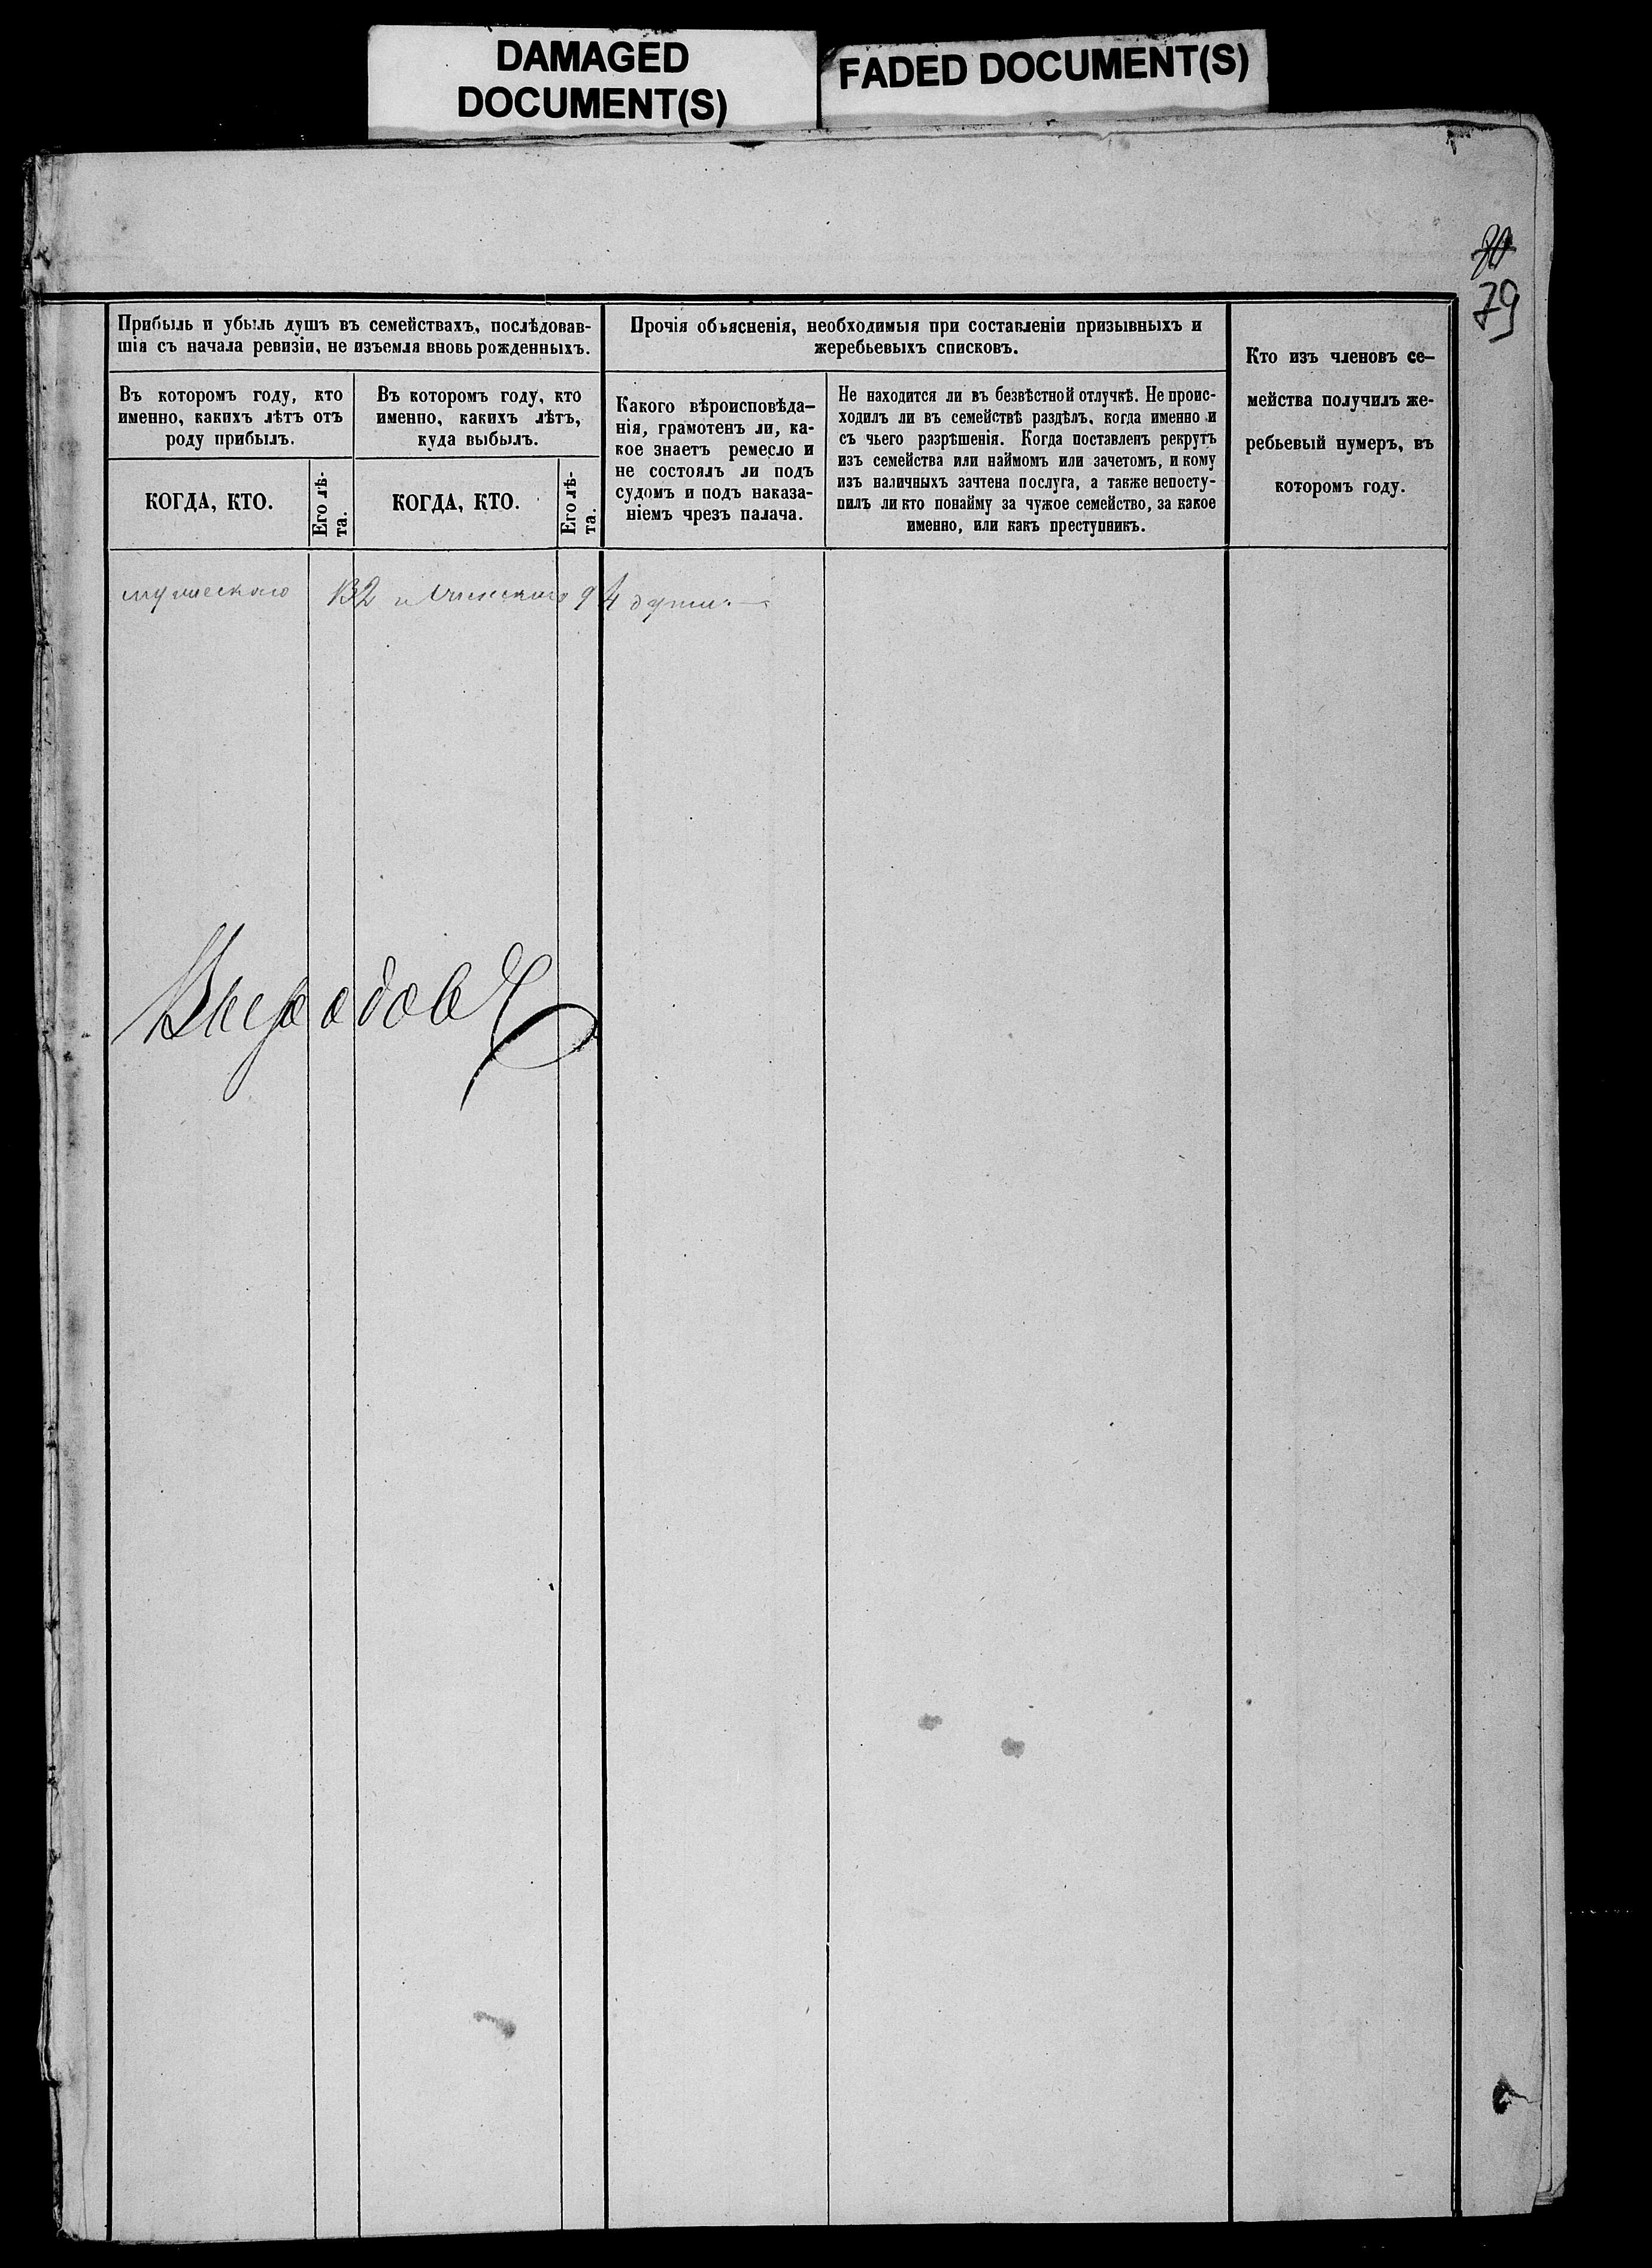 DAMAGED
DOCUMENT(S)
FADED DOCUMENT(S)
70
79
Прибыль и убыль душъ въ семействахъ, послѣдовав-
шія съ начала ревизіи, не изъемля вновь рожденныхъ.
Въ которомъ году, кто
именно, какихъ лѣтъ отъ
роду прибылъ.
КОГДА, КТО.
Его лѣ-
та.
Въ которомъ году, кто
именно, какихъ лѣтъ,
куда выбылъ.
КОГДА, КТО.
Его лѣ-
та.
Прочія объясненія, необходимыя при составленіи призывныхъ и
жеребьевыхъ списковъ.
Какого вѣроисповѣда-
нія, грамотенъ ли, ка-
кое знаетъ ремесло и
не состоялъ ли подъ
судомъ и подъ наказа-
ніемъ чрезъ палача.
Не находится ли въ безвѣстной отлучкѣ. Не проис-
ходилъ ли въ семействѣ раздѣлъ, когда именно и
съ чьего разрѣшенія. Когда поставленъ рекрутъ
изъ семейства или наймомъ или зачетомъ, и кому
изъ наличныхъ зачтена послуга, а также непосту-
пилъ ли кто понайму за чужое семейство, за какое
именно, или какъ преступникъ.
Кто изъ членовъ се-
мейства получилъ же-
ребьевый нумеръ, въ
которомъ году.
мужескаго 132 и женскаго 94 души.